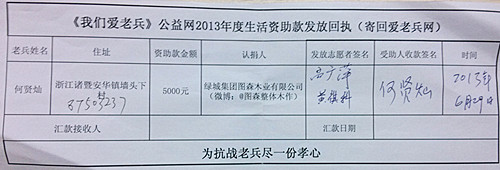 《我们爱老兵》公益网2013年度生活资助款发放回执（寄回爱老兵网）
老兵姓名 住址 资助款金额 认捐人 发放志愿者签名 受助人收款签名 时间
何贤灿 浙江诸暨安华镇墙头下村 5000元 绿城集团图森木业有限公司 何贤灿 2013年
87503237 （微博：@图森整体木作） 6月29日
汇款接收人 汇款日期
为抗战老兵尽一份孝心